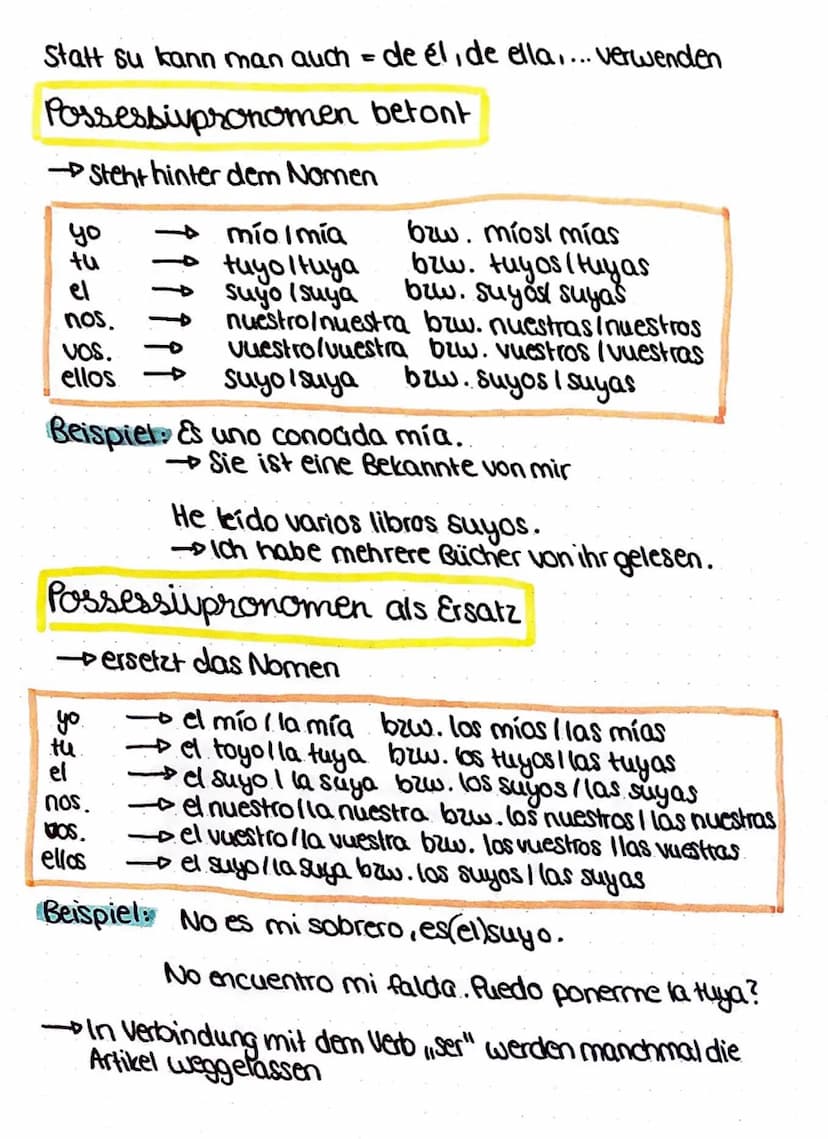 Statt su kann man auch = de él, de ella, ... verwenden
Possessivpronomen betont
→ Steht hinter dem Nomen
yo → mío/mía bzw. míos/mías
tu → tuyo/tuya bzw. tuyos/tuyas
el → suyo/suya bzw. suyos/suyas
nos. → nuestro/nuestra bzw. nuestras/nuestros
vos. → vuestro/vuestra bzw. vuestros/vuestras
ellos → suyo/suya bzw. suyos/suyas
Beispiel: Es uno conocida mía.
→ Sie ist eine Bekannte von mir
He leído varios libros suyos.
→ Ich habe mehrere Bücher von ihr gelesen.
Possessivpronomen als Ersatz
→ ersetzt das Nomen
yo → el mío/la mía bzw. los míos/las mías
tu → el toyo/la tuya bzw. los tuyos/las tuyas
el → el suyo/la suya bzw. los suyos/las suyas
nos. → el nuestro/la nuestra bzw. los nuestros/las nuestras
vos. → el vuestro/la vuestra bzw. los vuestros/las vuestras
ellos → el suyo/la suya bzw. los suyos/las suyas
Beispiel: No es mi sobrero, es(el)suyo.
No encuentro mi falda. Puedo ponerme la tuya?
→ In Verbindung mit dem Verb „ser" werden manchmal die
Artikel weggelassen